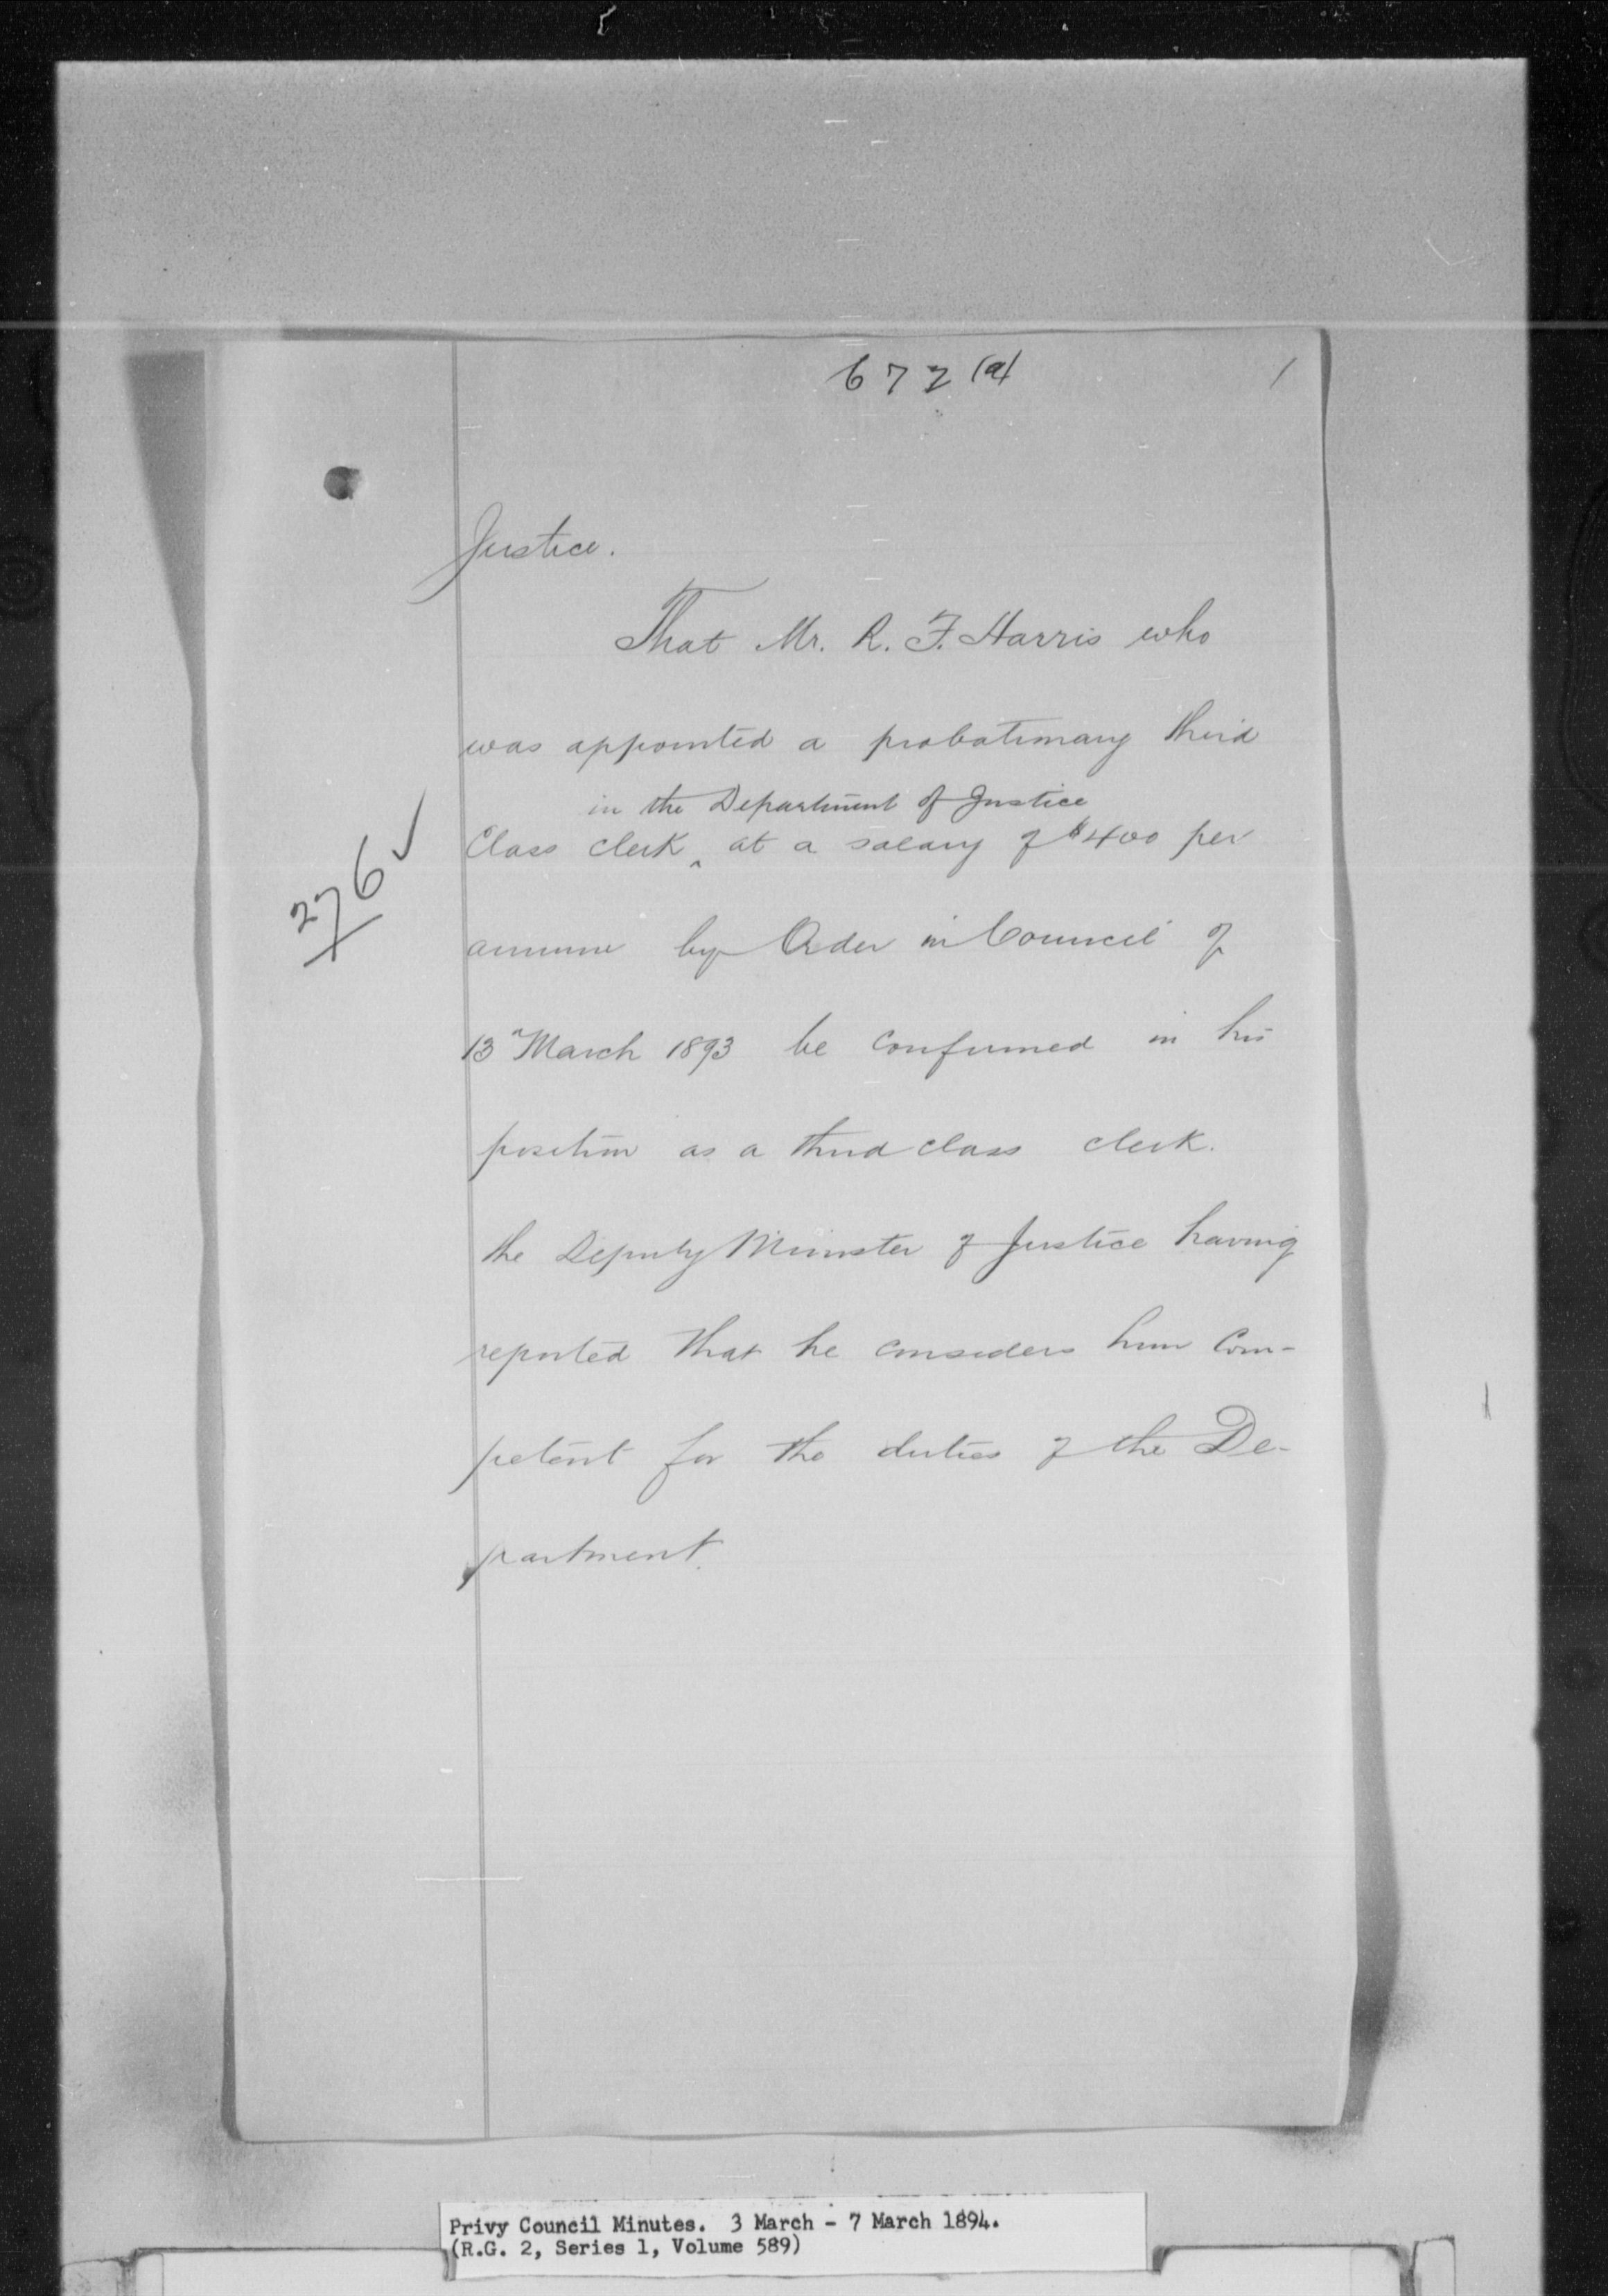 672 (a)
Justice.
That Mr. R. F. Harris who
was appointed a probationary third
in the Department of Justice
Class clerk ‸ at a salary of $400 per
annum by Order in Council of
13 March 1893 be confirmed in his
position as a third class clerk.
the Deputy Minister of Justice having
reported that he considers him Com-
petent for the duties of the De-
partment.
276 ✓
Privy Council Minutes. 3 March - 7 March 1894.
(R.G. 2, Series 1, Volume 589)